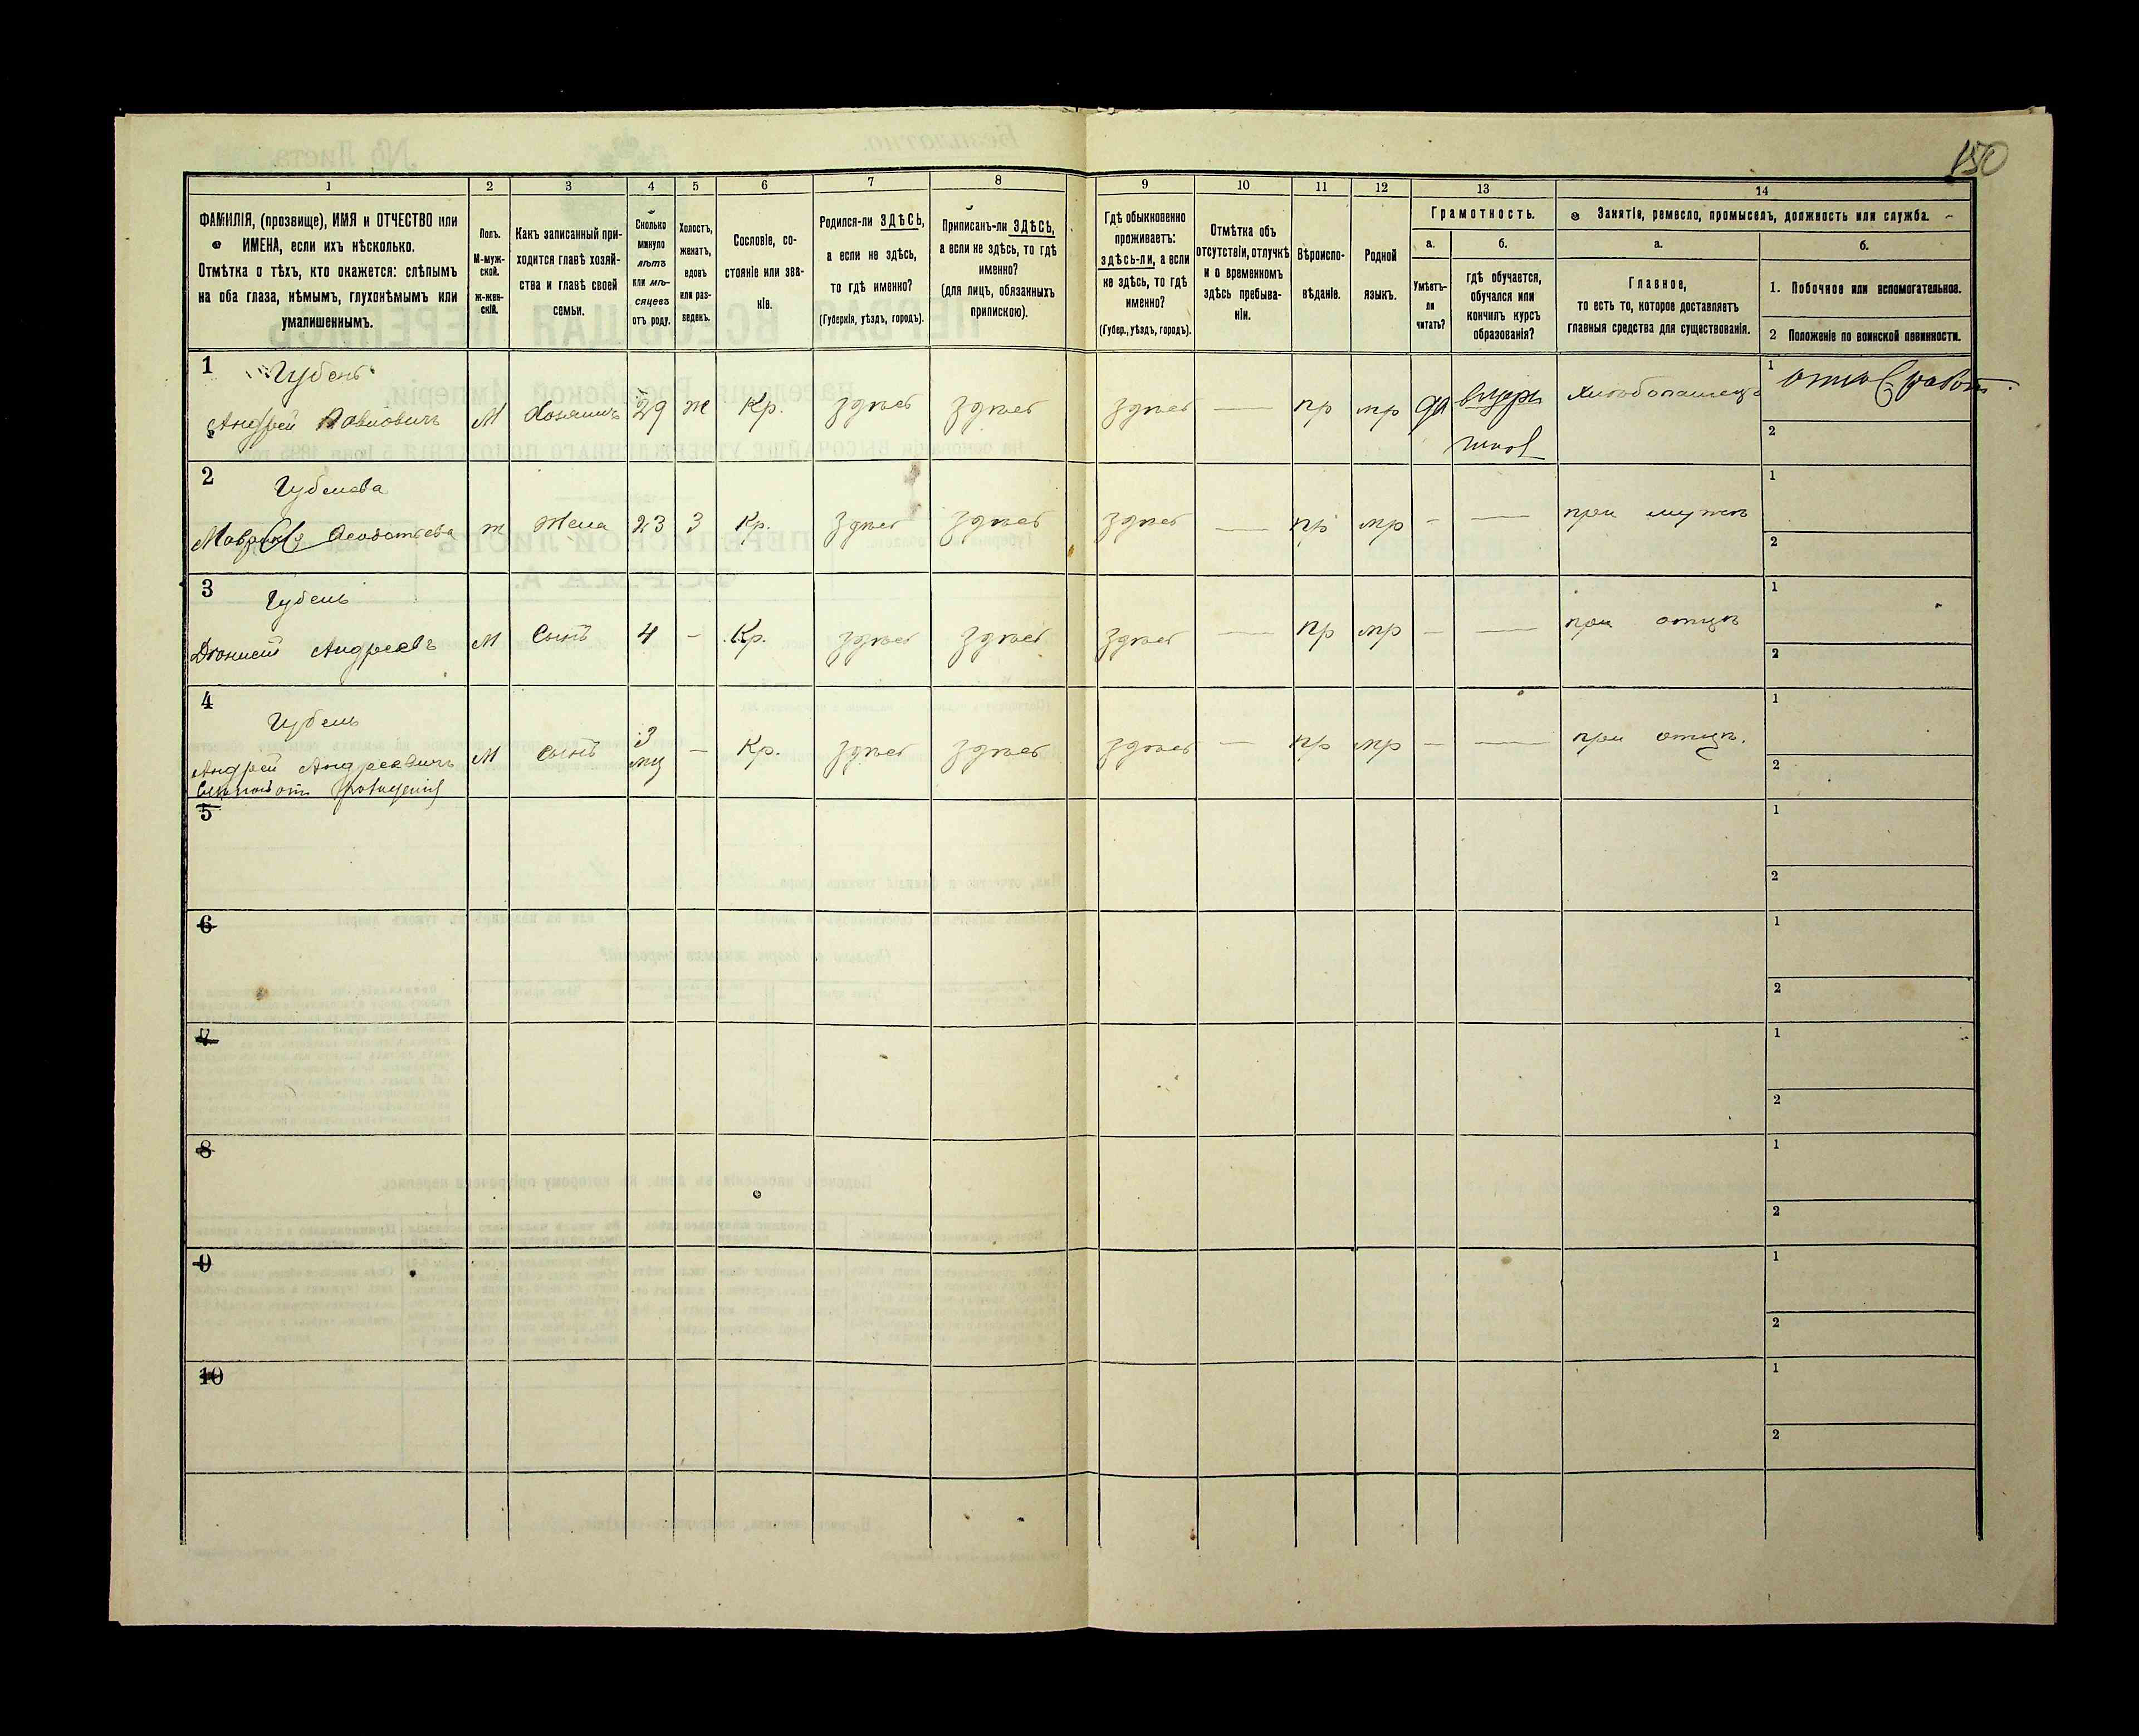 150
1
2
3
4
5
6
7
8
9
10
11
12
13
14
ФАМИЛІЯ, (прозвище), ИМЯ и ОТЧЕСТВО или
ИМЕНА, если ихъ нѣсколько.
Отмѣтка о тѣхъ, кто окажется: слѣпымъ
на оба глаза, нѣмымъ, глухонѣмымъ или
умалишеннымъ.
Полъ.
М-муж-
ской.
ж-жен-
скій.
Какъ записанный при-
ходится главѣ хозяй-
ства и главѣ своей
семьи.
Сколько
минуло
лѣтъ
или мѣ-
сяцевъ
отъ роду.
Холостъ,
женатъ,
вдовъ
или раз-
веденъ.
Сословіе, со-
стояніе или зва-
ніе.
Родился-ли ЗДѢСЬ,
а если не здѣсь,
то гдѣ именно?
(Губернія, уѣздъ, городъ).
Приписанъ-ли ЗДѢСЬ,
а если не здѣсь, то гдѣ
именно?
(для лицъ, обязанныхъ
припискою).
Гдѣ обыкновенно
проживаетъ:
здѣсь-ли, а если
не здѣсь, то гдѣ
именно?
(Губер., уѣздъ, городъ).
Отмѣтка объ
отсутствіи, отлучкѣ
и о временномъ
здѣсь пребыва-
ніи.
Вѣроиспо-
вѣданіе.
Родной
языкъ.
Грамотность.
а.
Умѣетъ-
ли
читать?
б.
гдѣ обучается,
обучался или
кончилъ курсъ
образованія?
Занятіе, ремесло, промыселъ, должность или служба.
а.
Главное,
то есть то, которое доставляетъ
главныя средства для существованія.
б.
1. Побочное или вспомогательное.
2 Положеніе по воинской повинности.
1
Губень
Андрей Павловичъ М Хозяинъ 29 ж Кр. здѣсь здѣсь здѣсь — пр мр да Хлѣбопашецъ
1
2
2
Губенева
Ѳеодотьева ж Жена 23 З Кр. здѣсь здѣсь здѣсь — пр мр - — при мужѣ
1
2
3
Губень
Діонисій Андреевъ М Сынъ 4 - Кр. здѣсь здѣсь здѣсь — пр мр - — при отцѣ
1
2
4
Губень
Андрей Андреевичъ М Сынъ 3 мц - Кр. здѣсь здѣсь здѣсь — пр мр - — при отцѣ.
1
2
5
1
2
6
1
2
7
1
2
8
1
2
9
1
2
10
1
2